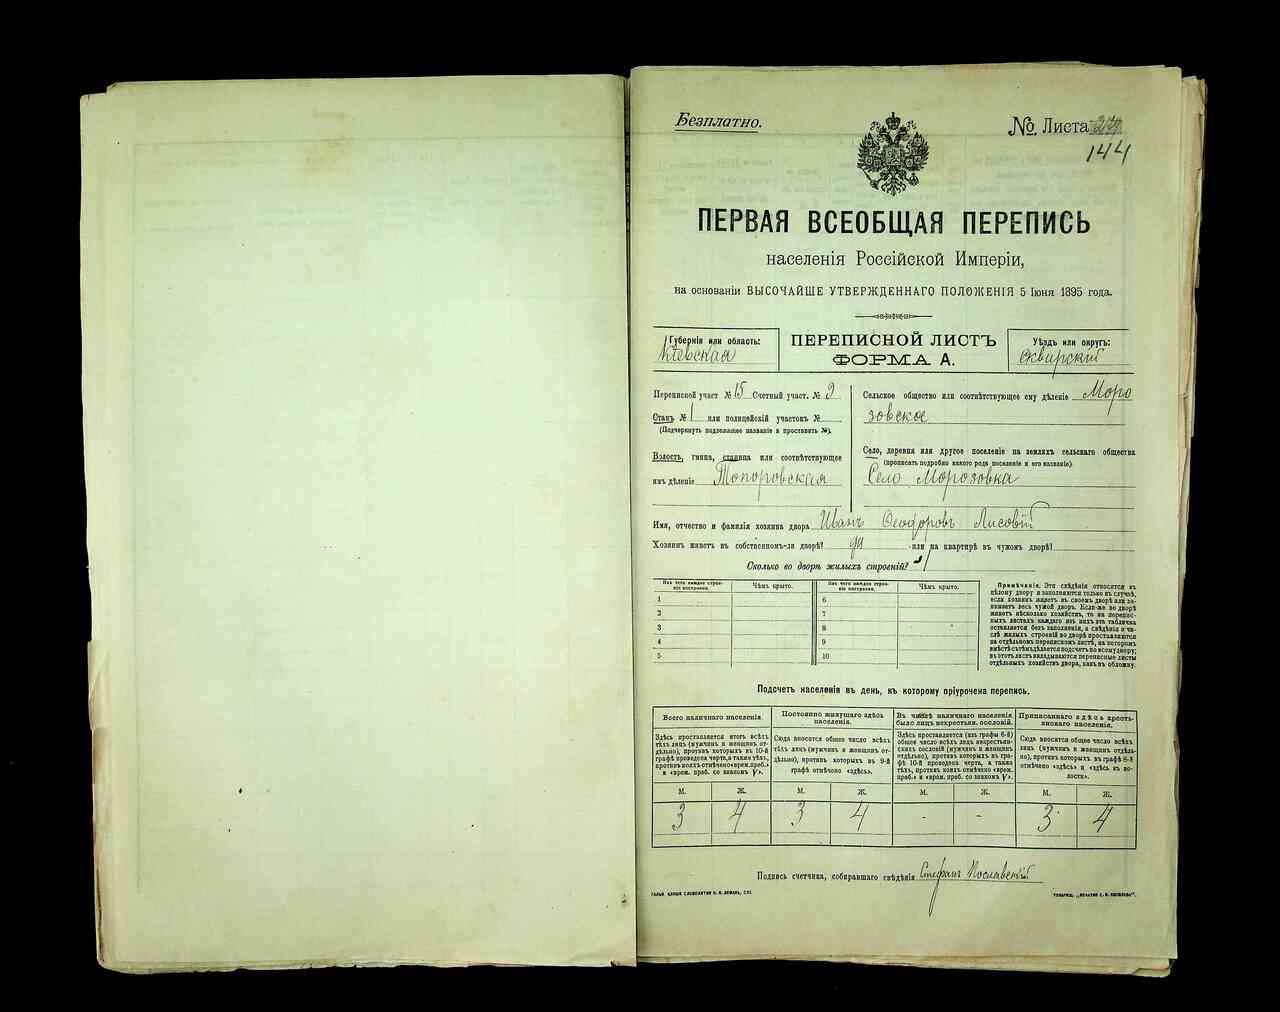 Безплатно.
№ Листа
144
ПЕРВАЯ ВСЕОБЩАЯ ПЕРЕПИСЬ
населенія Россійской Имперіи,
на основаніи ВЫСОЧАЙШЕ УТВЕРЖДЕННАГО ПОЛОЖЕНІЯ 5 Іюня 1895 года.
Губернія или область:
Кіевская
ПЕРЕПИСНОЙ ЛИСТЪ
ФОРМА А.
Уѣздъ или округъ:
Сквирскій
Переписной участ № 15 Счетный участ. № 2
Станъ № 1 или полицейскій участокъ №
(Подчеркнуть подлежащее названіе и проставить №).
Волость, гмина, станица или соотвѣтствующее
имъ дѣленіе Топоровская
Сельское общество или соотвѣтствующее ему дѣленіе Моро
зовское
Село, деревня или другое поселеніе на земляхъ сельскаго общества
(прописать подробно какого рода поселеніе и его названіе).
Село Морозовка
Имя, отчество и фамилія хозяина двора Иванъ Феодоровъ Лисовій
Хозяинъ живетъ въ собственномъ-ли дворѣ? да или на квартирѣ въ чужомъ дворѣ?
Сколько во дворѣ жилыхъ строеній? 1
Изъ чего каждое строеніе построено.
Чѣмъ крыто.
Изъ чего каждое строеніе построено.
Чѣмъ крыто.
1
2
3
4
5
6
7
8
9
10
Примѣчаніе. Эти свѣдѣнія относятся къ
цѣлому двору и заполняются только въ случаѣ,
если хозяинъ живетъ въ своемъ дворѣ или занимаетъ весь чужой дворъ. Если-же во дворѣ
живетъ нѣсколько хозяйствъ, то на переписныхъ листахъ каждаго изъ нихъ эта табличка
оставляется безъ заполненія, а свѣдѣнія о числѣ жилыхъ строеній во дворѣ проставляются
на отдѣльномъ переписномъ листѣ, на которомъ
вмѣстѣ съ тѣмъ дѣлается подсчетъ по всему двору;
въ этотъ листъ вкладываются переписные листы
отдѣльныхъ хозяйствъ двора, какъ въ обложку.
Подсчетъ населенія въ день, къ которому пріурочена перепись.
Всего наличнаго населенія.
Здѣсь проставляется итогъ всѣхъ
тѣхъ лицъ (мужчинъ и женщинъ отдѣльно), противъ которыхъ въ 10-й
графѣ проведена черта, а также тѣхъ,
противъ коихъ отмѣчено «врем. преб.»
и «врем. преб. со знакомъ V».
Постоянно живущаго здѣсь
населенія.
Сюда вносится общее число всѣхъ
тѣхъ лицъ (мужчинъ и женщинъ отдѣльно), противъ которыхъ въ 9-й
графѣ отмѣчено «здѣсь».
Въ числѣ наличнаго населенія
было лицъ некрестьян. сословій.
Здѣсь проставляется (изъ графы 6-й)
общее число всѣхъ лицъ некрестьянскихъ сословій (мужчинъ и женщинъ
отдѣльно), противъ которыхъ въ графѣ 10-й проведена черта, а также
тѣхъ, противъ коихъ отмѣчено «врем.
преб.» и «врем. преб. со знакомъ V».
Приписаннаго здѣсь крестьянскаго населенія.
Сюда вносится общее число всѣхъ
лицъ (мужчинъ и женщинъ отдѣльно), противъ которыхъ въ графѣ 8-й
отмѣчено «здѣсь» и «здѣсь въ волости».
М. Ж. М. Ж. М. Ж. М. Ж.
3 4 3 4 - - 3 4
Подпись счетчика, собиравшаго свѣдѣнія Стефанъ